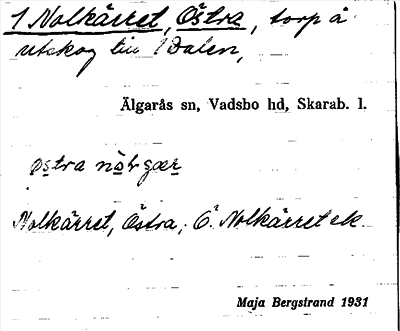 1 Nolkärret, Östra, torp å
utskog till 1 Dalen,
Älgarås sn, Vadsbo hd, Skarab. l.
Nolkärret, Östra; Ö. Nolkärret ek.
Maja Bergstrand 1931